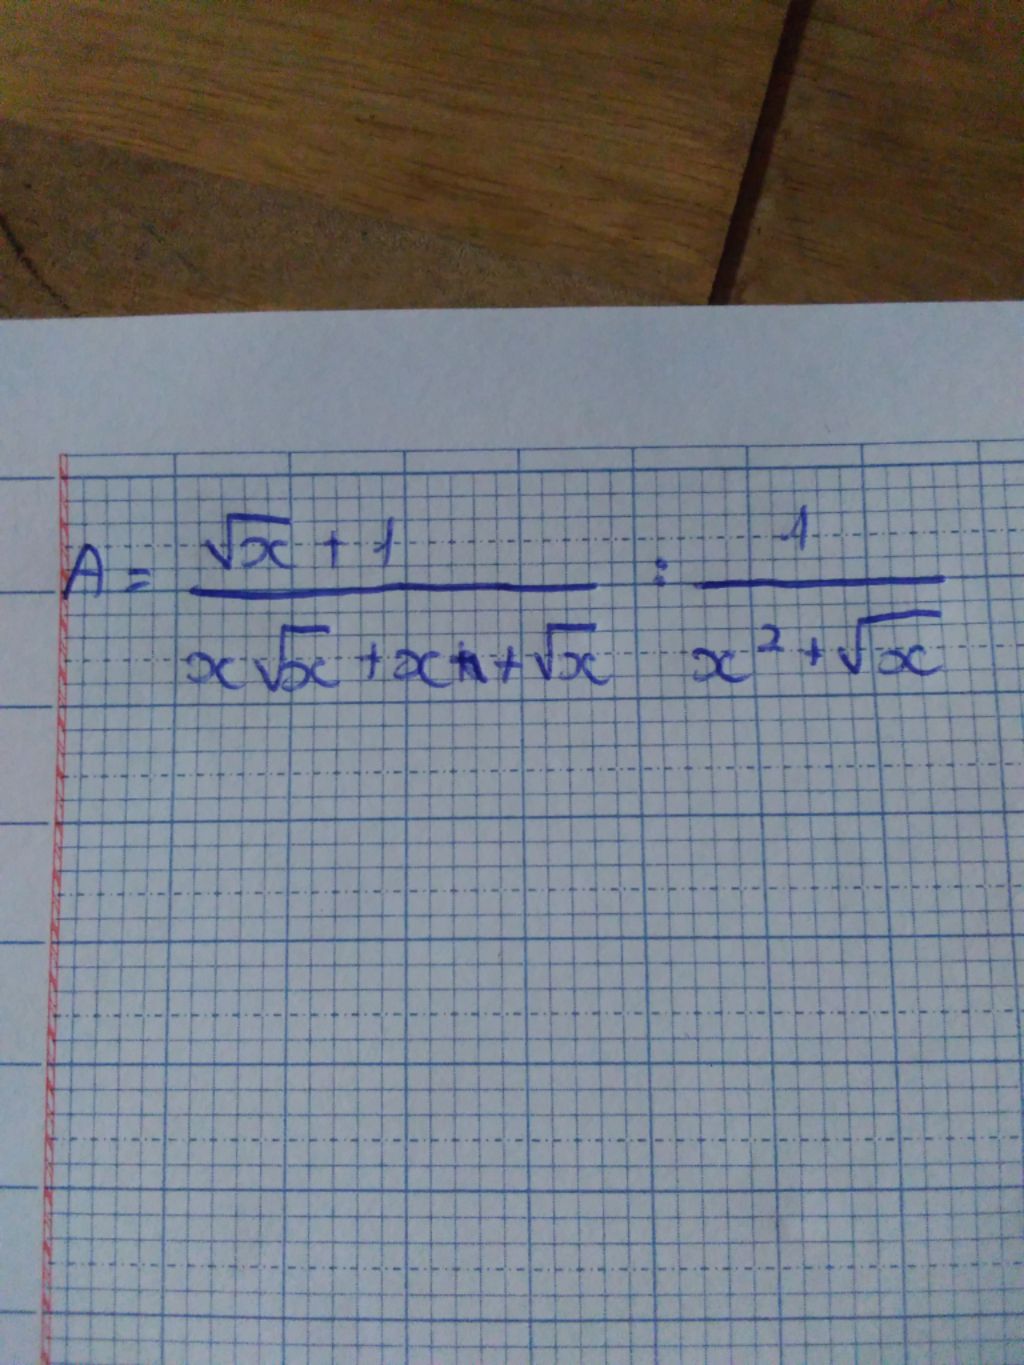 A = \frac{\sqrt{x} + 1}{x\sqrt{x} + x + \sqrt{x}} : \frac{1}{x^2 + \sqrt{x}}